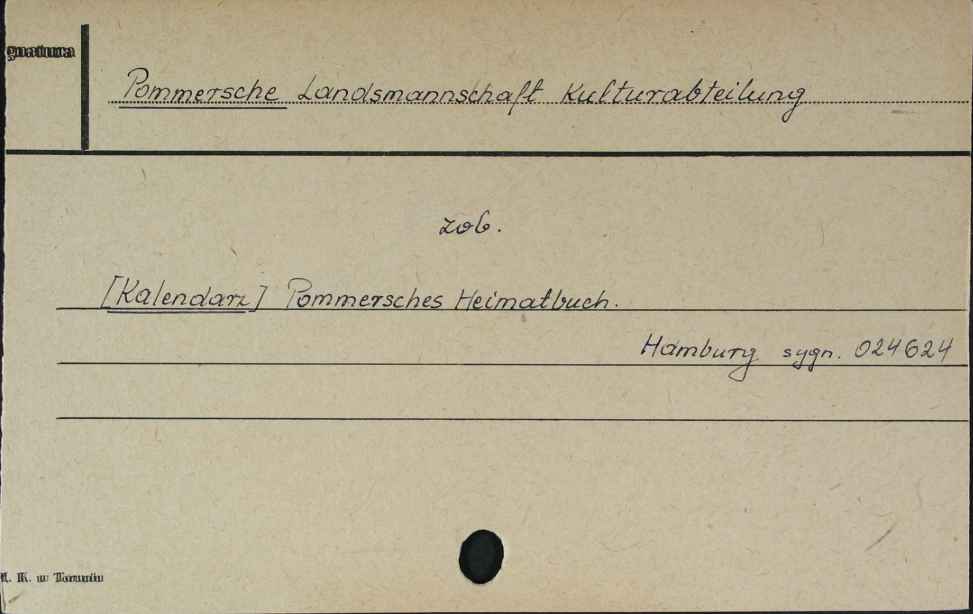 gnatura
Pommersche Landsmannschaft Kulturabteilung
zob.
[Kalendarz] Pommersches Heimatbuch.
Hamburg sygn. 024624
K. w Toruniu